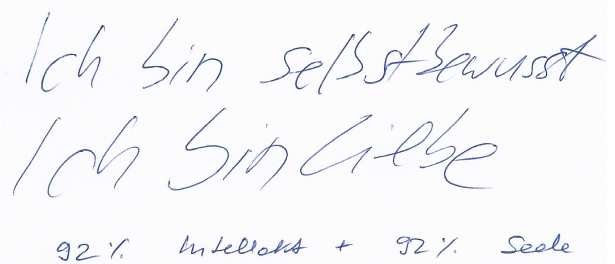 Ich bin selbstbewusst
Ich bin Liebe
92% Intellekt + 92% Seele